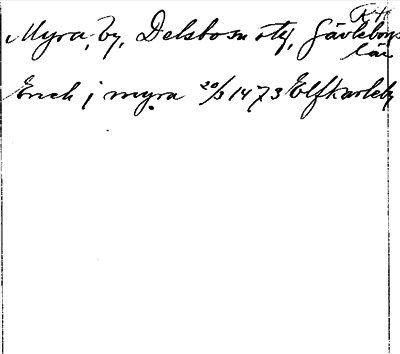 Myra, by, Delsbo sn o tg, Gävleborgs
län
Erich j myra 20/3 1473 Elfkarleby